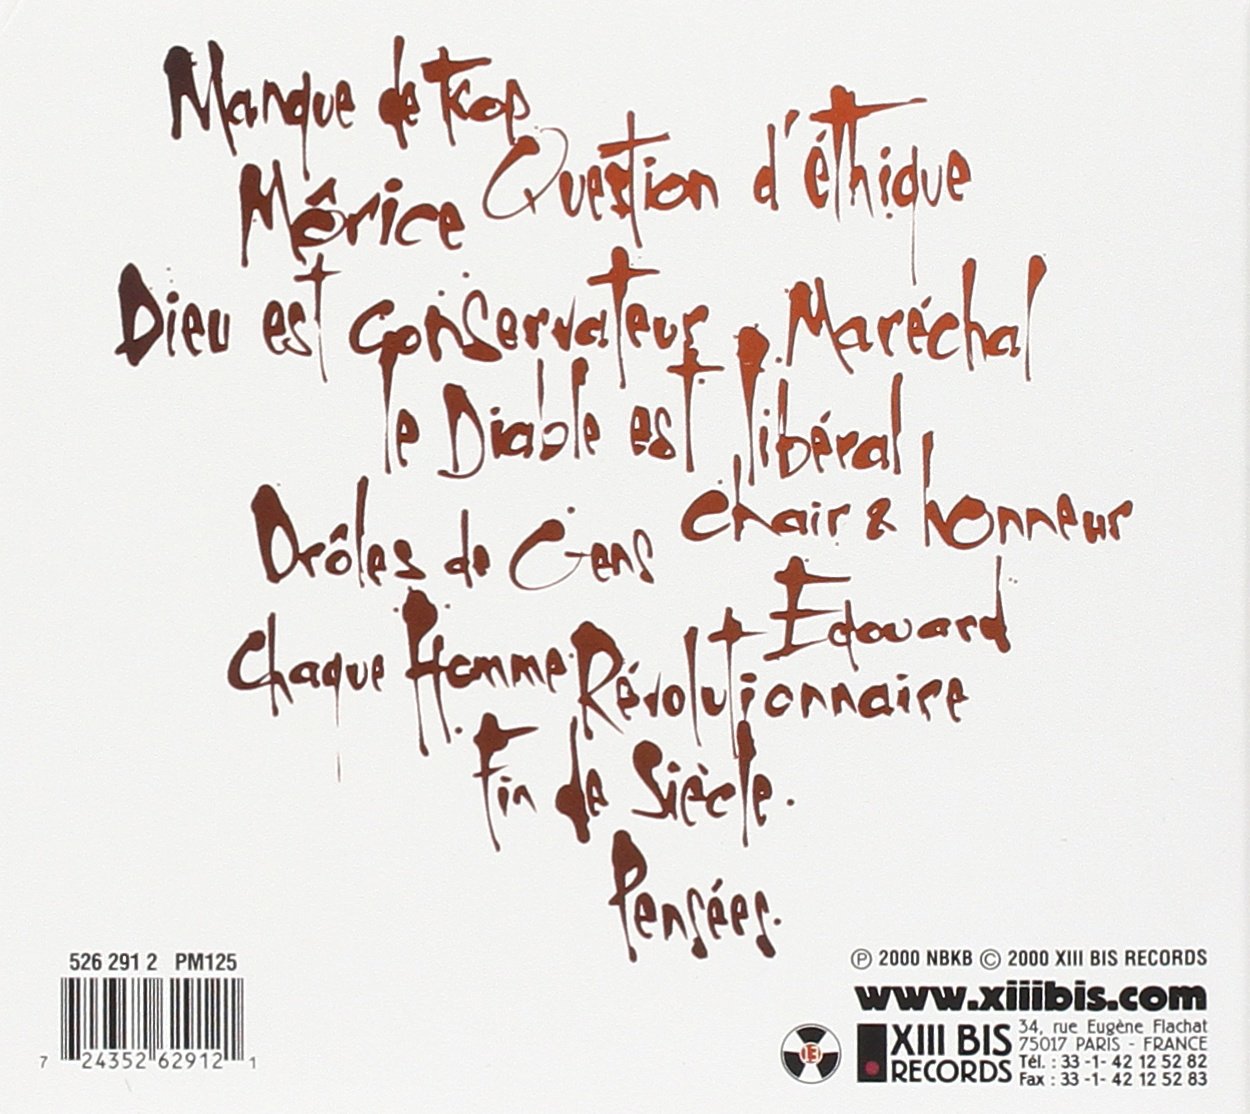 Manque de trop
Question d'éthique
Môrice
Dieu est conservateur,
Maréchal
le Diable est libéral
chair & honneur
Drôles de Gens
Edouard
Chaque Homme
Révolutionnaire
Fin de Siècle.
Pensées.
526 291 2 PM125
7 24352 62912 1
Ⓟ 2000 NBKB © 2000 XIII BIS RECORDS
www.xiiibis.com
13
XIII BIS
RECORDS
34, rue Eugène Flachat
75017 PARIS - FRANCE
Tél. : 33 -1- 42 12 52 82
Fax : 33 -1- 42 12 52 83